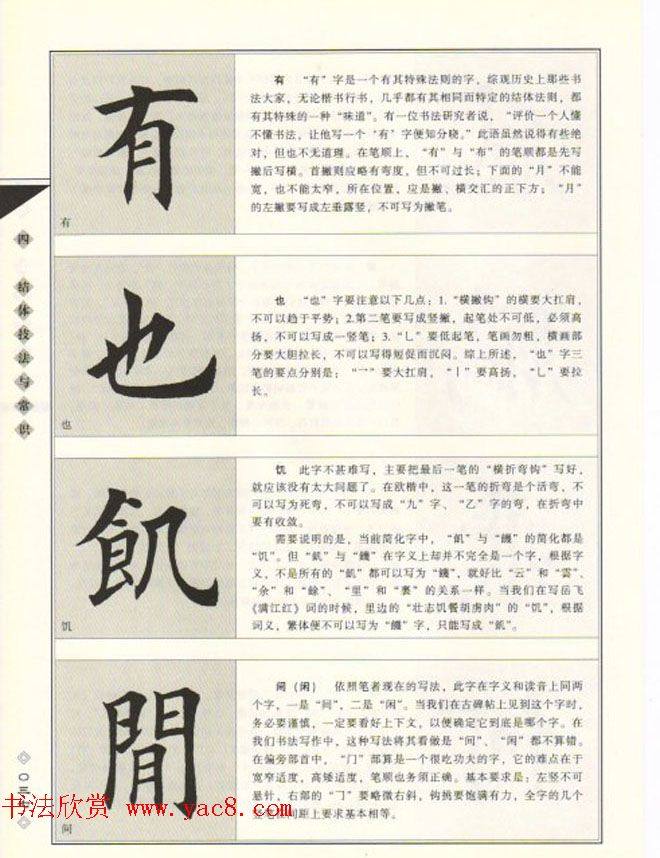 有
有
有 “有”字是一个有其特殊法则的字，综观历史上那些书
法大家，无论楷书行书，几乎都有其相同而特定的结体法则，都
有其特殊的一种“味道”。有一位书法研究者说，“评价一个人懂
不懂书法，让他写一个‘有’字便知分晓。”此语虽然说得有些绝
对，但也不无道理。在笔顺上，“有”与“布”的笔顺都是先写
撇后写横。首撇则应略有弯度，但不可过长；下面的“月”不能
宽，也不能太窄，所在位置，应是撇、横交汇的正下方；“月”
的左撇要写成左垂露竖，不可写为撇笔。
四 结体技法与常识
也
也
也 “也”字要注意以下几点：1.“横撇钩”的横要大扛肩，
不可以趋于平势；2.第二笔要写成竖撇，起笔处不可低，必须高
扬，不可以写成一竖笔；3.“乚”要低起笔，笔画勿粗，横画部
分要大胆拉长，不可以写得短促而沉闷。综上所述，“也”字三
笔的要点分别是：“乛”要大扛肩，“丨”要高扬，“乚”要拉
长。
飢
饥
饥 此字不甚难写，主要把最后一笔的“横折弯钩”写好，
就应该没有太大问题了。在欧楷中，这一笔的折弯是个活弯，不
可以写为死弯，不可以写成“九”字、“乙”字的弯，在折弯中
要有收敛。
需要说明的是，当前简化字中，“飢”与“饑”的简化都是
“饥”。但“飢”与“饑”在字义上却并不完全是一个字，根据字
义，不是所有的“飢”都可以写为“饑”，就好比“云”和“雲”、
“余”和“餘”、“里”和“裏”的关系一样。当我们在写岳飞
《满江红》词的时候，里边的“壮志饥餐胡虏肉”的“饥”，根据
词义，繁体便不可以写为“饑”字，只能写成“飢”。
間
间
间（闲） 依照笔者现在的写法，此字在字义和读音上同两
个字，一是“间”，二是“闲”。当我们在古碑帖上见到这个字时，
务必要谨慎，一定要看好上下文，以便确定它到底是哪个字。在
我们书法写作中，这种写法将其看做是“间”、“闲”都不算错。
在偏旁部首中，“门”部算是一个很吃功夫的字，它的难点在于
宽窄适度，高矮适度，笔顺也务须正确。基本要求是：左竖不可
悬针，右部的“㇆”要略微右斜，钩挑要饱满有力，全字的几个
间距上要求基本相等。
〇三
书法欣赏 www.yac8.com